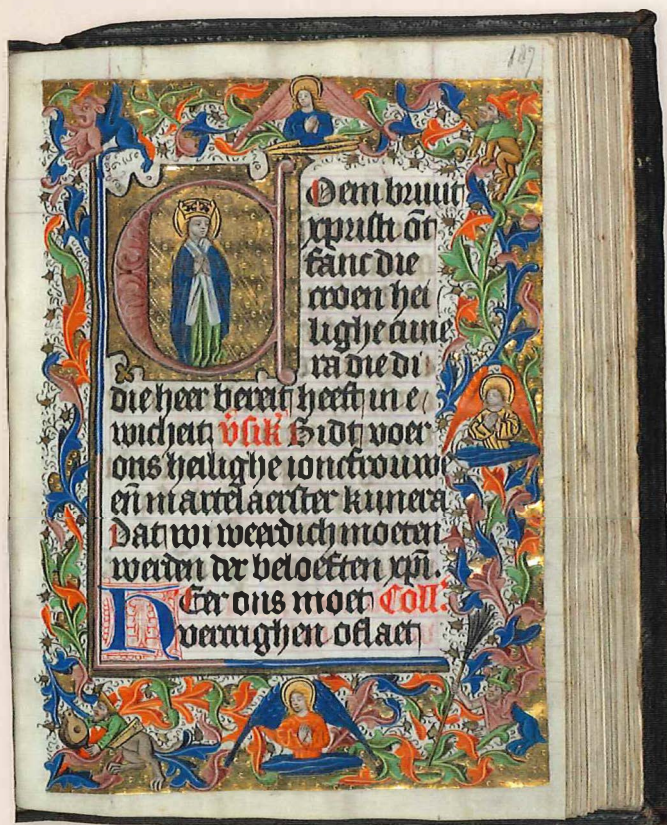 187
Coem bruut
xp̄risti ōt
fanc die
croen hei
lighe cune
ra die di
die heer bereit heeft in e
wicheit v̄sik̄ Bidt voer
ons heilighe ioncfrouwe
en̄ martelaerster kunera
Dat wi weerdich moeten
werden der beloeften xp̄i.
Heer ons moet Coll̄.
vercrighen oflaet